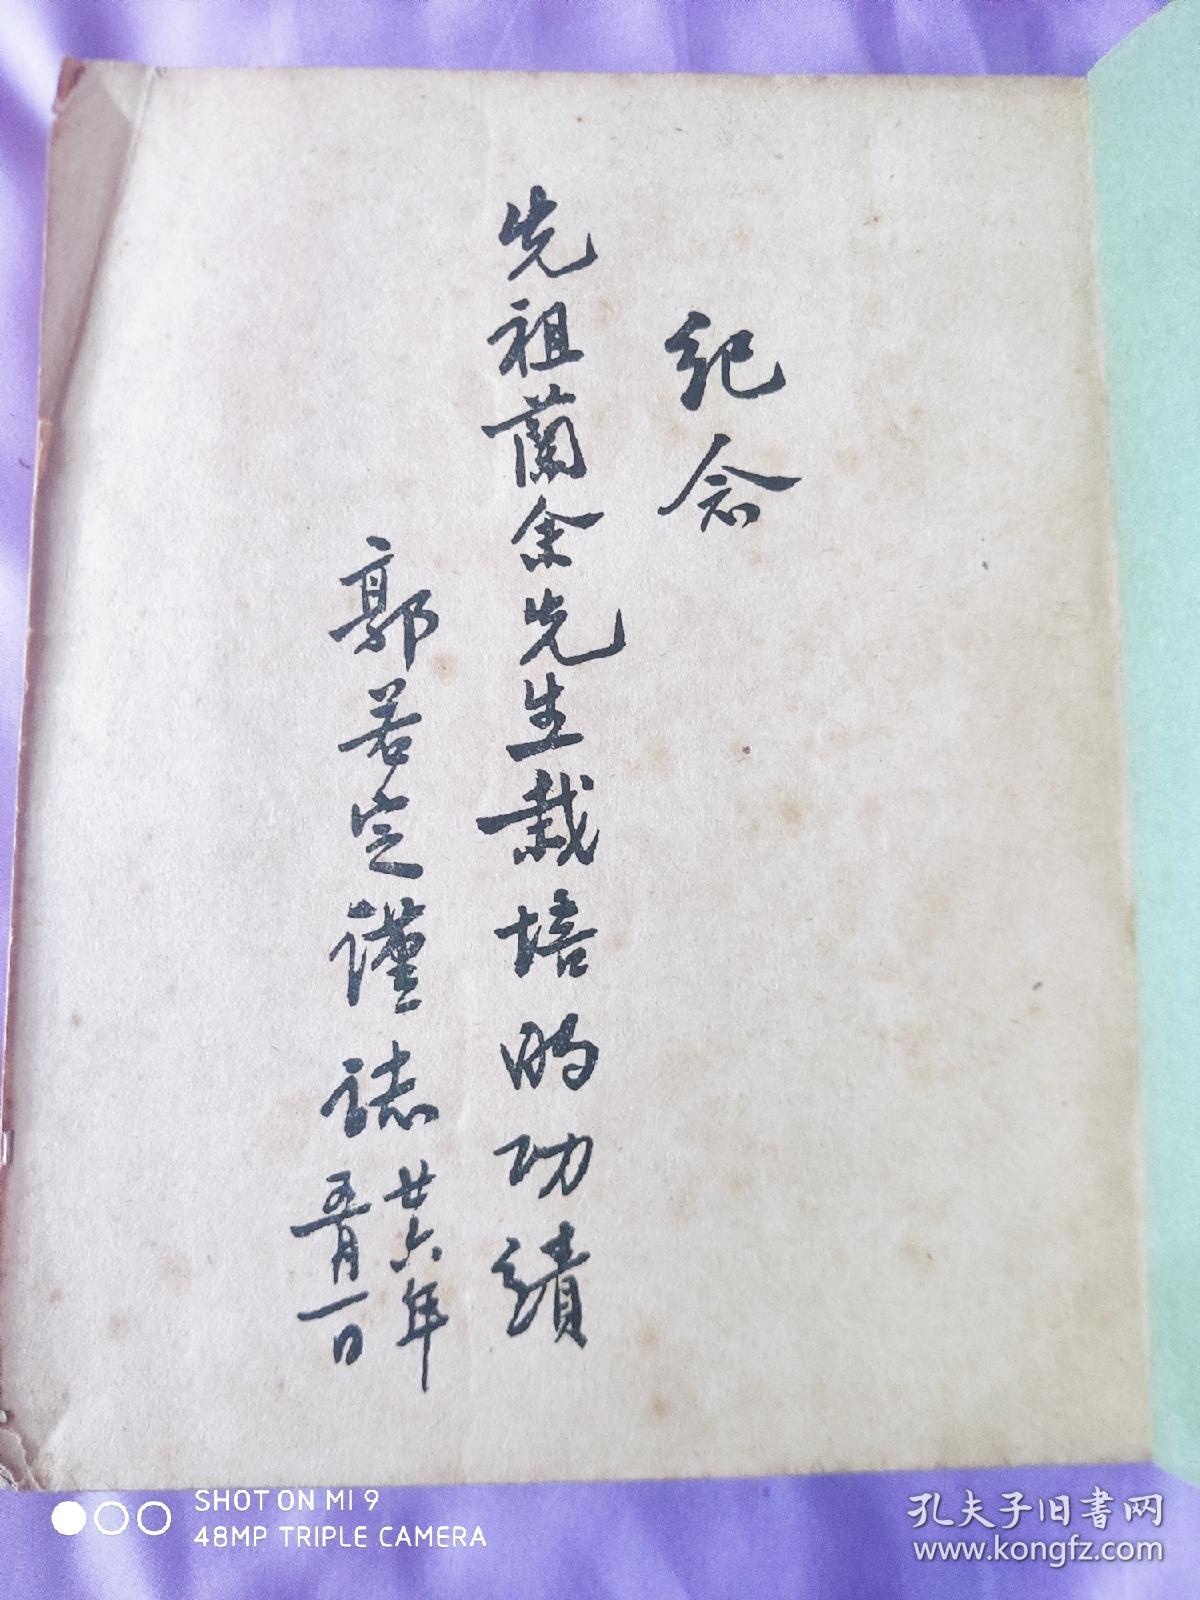 纪念
先祖蘭余先生栽培的功績
郭若定謹誌
廿六年
五月一日
SHOT ON MI 9
48MP TRIPLE CAMERA
孔夫子旧书网
www.kongfz.com